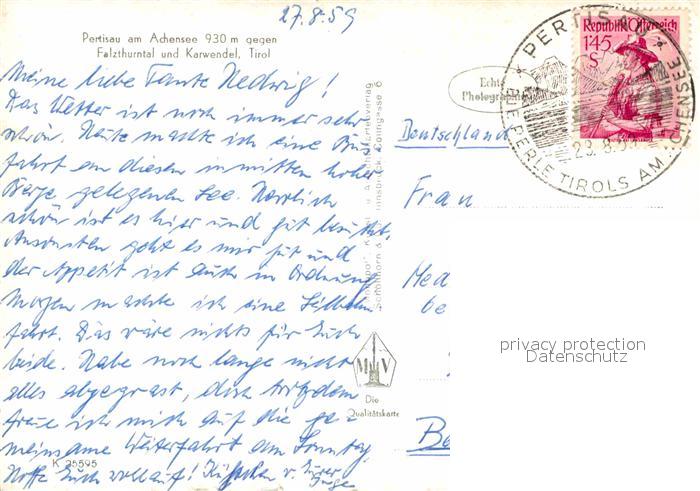 27.8.59
Pertisau am Achensee 930 m gegen
Falzthurntal und Karwendel, Tirol
Meine liebe Tante Hedwig!
Das Wetter ist noch immer sehr
schön. Heute machte ich eine
fahrt an diesen inmitten hoher
Berge gelegenen See. Herrlich
schön ist es hier und gut
Ansonsten geht es mir gut und
der Appetit ist auch in Ordnung
Morgen machte ich eine
fahrt. Das wäre nichts für Euch
beide. Habe noch lange nicht
alles abgegrast, doch trotzdem
freue ich mich auf die ge-
meinsame Weiterfahrt am Sonntag.
Hoffe Euch wohlauf! Küßchen v. Eurer
Inge
K 25595
Echte
Photographie
Die
Qualitätskarte
M V
Republik Österreich
1·45
S
PERTISAU
DIE PERLE TIROLS AM ACHENSEE
Deutschland
Frau
Med
be
Be
privacy protection
Datenschutz